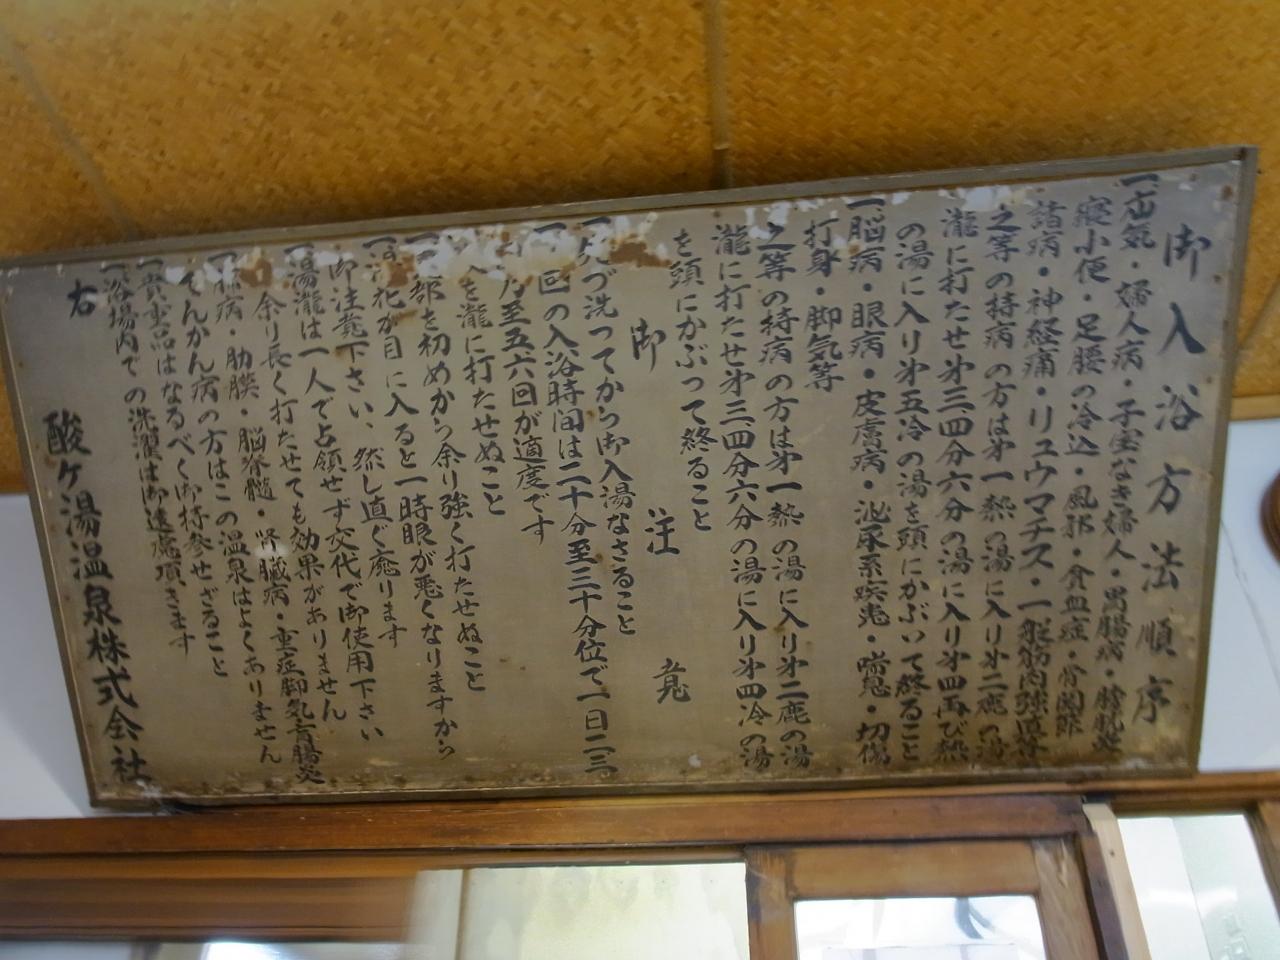 御入浴方法順序
一、疝気・婦人病・子宝なき婦人・胃腸病・膀胱炎
寝小便・足腰の冷込・風邪・貧血症・骨関節
諸病・神経痛・リュウマチス・一般筋肉強直等
之等の持病の方は第一熱の湯に入り第二鹿の湯
瀧に打たせ第三、四分六分の湯に入り第四再び熱
の湯に入り第五冷の湯を頭にかぶいて終ること
一、脳病・眼病・皮膚病・泌尿系疾患・喘息・切傷
打身・脚気等
之等の持病の方は第一熱の湯に入り第二鹿の湯
瀧に打たせ第三、四分六分の湯に入り第四冷の湯
を頭にかぶって終ること
御注意
一、先づ洗ってから御入湯なさること
一、一回の入浴時間は二十分至三十分位で一日二、三
乃至五六回が適度です
を瀧に打たせぬこと
部を初めから余り強く打たせぬこと
一、湯花が目に入ると一時眼が悪くなりますから
御注意下さい、然し直ぐ癒ります
一、湯瀧は一人で占領せず交代で御使用下さい
余り長く打たせても効果がありません
一、肺病・肋膜・脳脊髄・腎臓病・重症脚気盲腸炎
てんかん病の方はこの温泉はよくありません
一、貴重品はなるべく御持参せざること
一、浴場内での洗濯は御遠慮頂きます
右
酸ヶ湯温泉株式会社